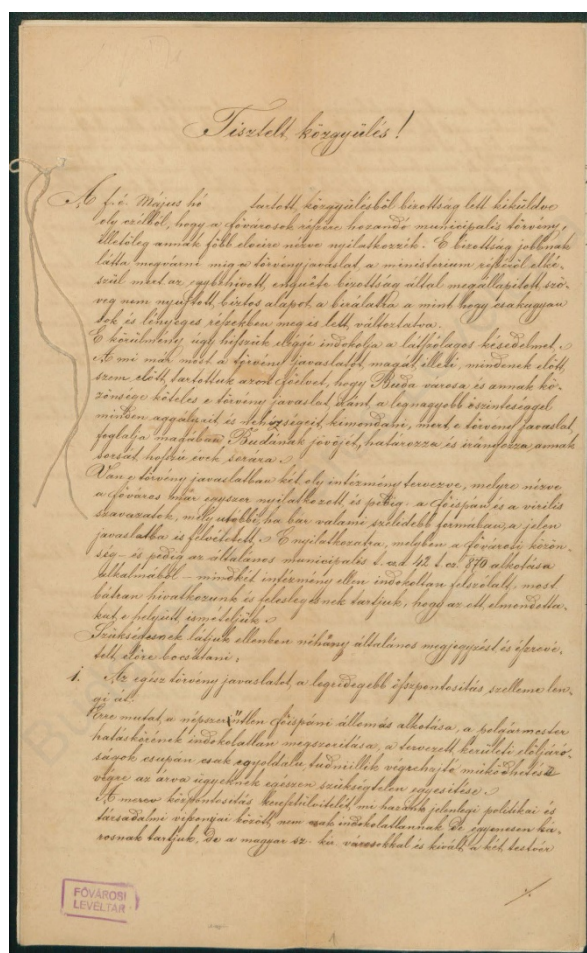 Tisztelt közgyülés!
A f. é. Május hó tartott közgyülésből bizottság lett kiküldve
oly czélból, hogy a fővárosok részére hozandó municipalis törvény,
illetőleg annak főbb elveire nézve nyilatkozzék. E bizottság jobbnak
látta megvárni mig a törvényjavaslat a ministerium részéről elké-
szül mert az egybehivott enquête bizottság által megállapitott szö-
veg nem nyujtott biztos alapot a birálatra a mint hogy csakugyan
sok és lényeges részekben meg is lett változtatva.
E körülmény úgy hiszszük eléggé indokolja a látszólagos késedelmet.
A mi már most a törvény javaslatot magát illeti, mindenek előtt
szem előtt tartottuk azon főelvet, hogy Buda városa és annak kö-
zönsége köteles e törvény javaslat iránt a legnagyobb őszinteséggel
minden aggályait és nehézségeit kimondani, mert e törvény javaslat
foglalja magában Budának jövőjét, határozza és irányozza annak
sorsát hosszú évek sorára.
Van e törvény javaslatban két oly intézmény tervezve, melyre nézve
a főváros már egyszer nyilatkozott, és pedig a főispán és a virilis
szavazatok, mely utóbbi, ha bár valami szelidebb formában, a jelen
javaslatba is felvétetett. A nyilatkozatra, melyben a fővárosi közön-
ség – és pedig az általános municipalis t. cz. d. 42 t. cz. 870 alkotása
alkalmából – mindkét intézmény ellen indokoltan felszólalt, most
bátran hivatkozunk és feleslegesnek tartjuk, hogy az ott elmondotta-
kat e helyütt ismételjük.
Szükségesnek látjuk ellenben néhány általános megjegyzést és észrevé-
telt előre bocsátani.
1. Az egész törvény javaslatot a legridegebb öszpontositás szelleme len-
gi át.
Erre mutat a népszerütlen főispáni állomás alkotása, a polgármester
hatáskörének indokolatlan megszoritása, a tervezett kerületi elöljáró-
ságok csupán csak egyoldalu, tudniillik végrehajtó működhetése
végre az árva ügyeknek egészen szükségtelen egyesitése.
A merev központositás keresztülvitelét, mi hazánk jelenlegi politikai és
társadalmi viszonyai között, nem csak indokolatlannak de egyenesen ká-
rosnak tartjuk, de a magyar sz. kir. városokkal és kivált a két testvér
FŐVÁROSI
LEVÉLTÁR
1